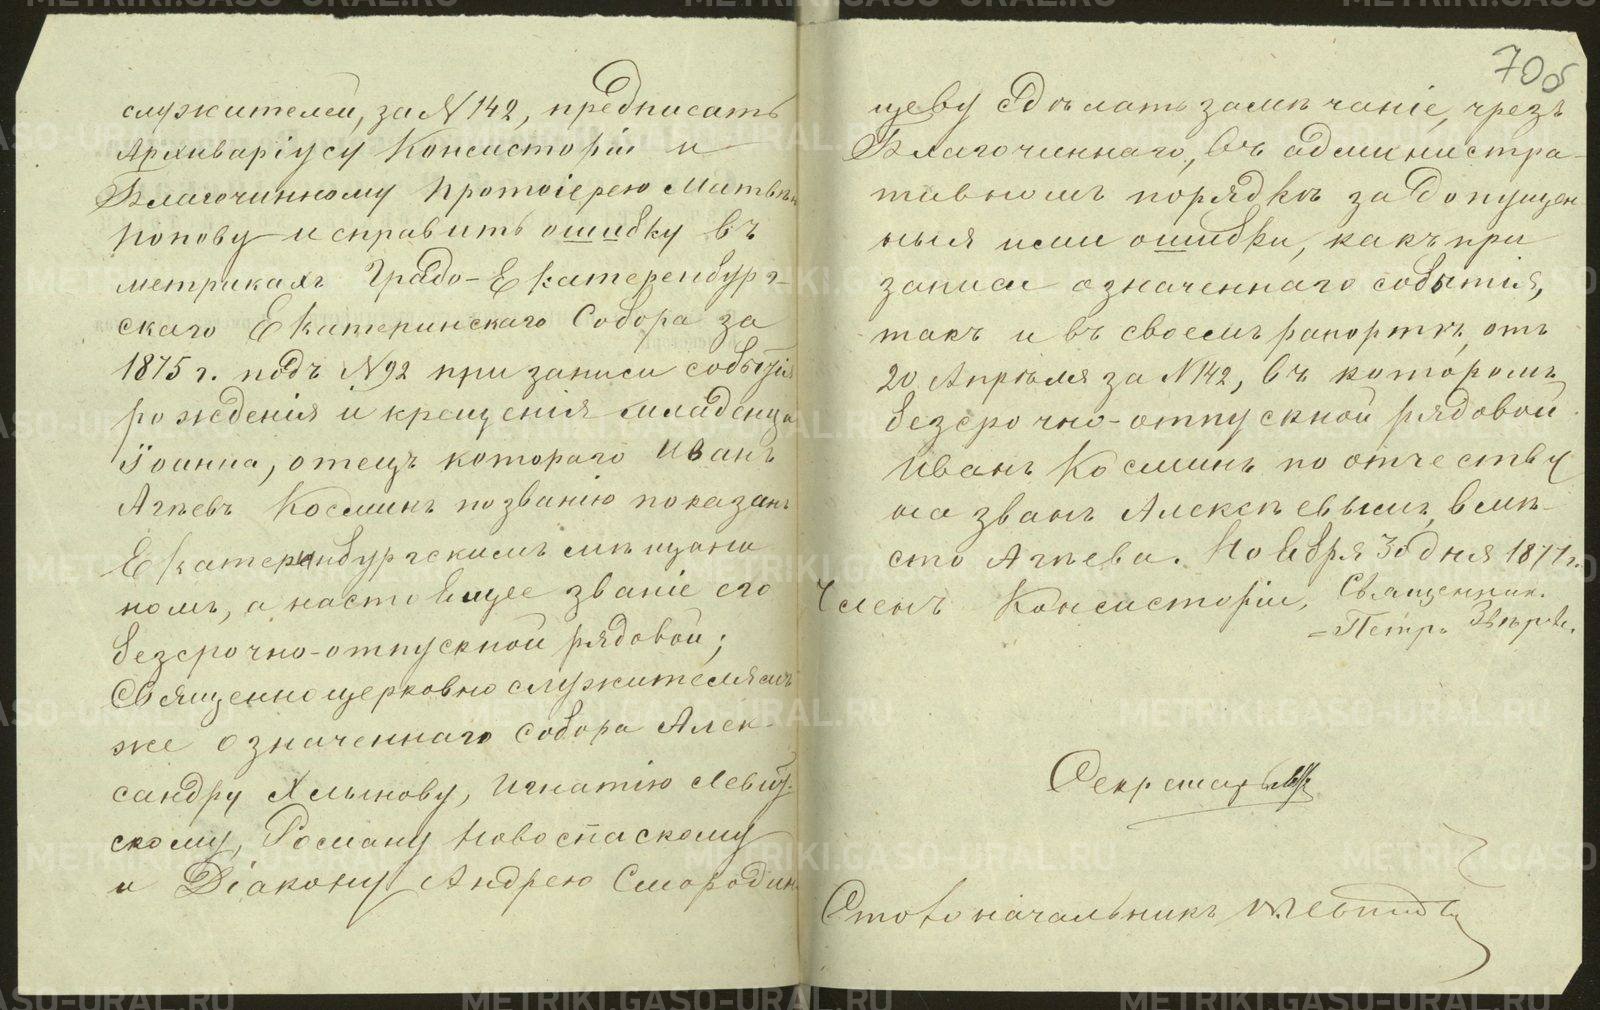 служителей, за N 142, предписать
Архиваріусу Консисторіи и
Благочинному Протоіерею Матвѣю
Попову исправить ошибку въ
метрикахъ Градо-Екатеренбург-
скаго Екатеринскаго Собора за
1875 г. подъ N 92 при записи событія
рожденія и крещенія младенца
Іоанна, отецъ котораго Иванъ
Агѣевъ Косминъ по званію показанъ
Екатеринбургскимъ мѣщани
номъ, а настоящее званіе его
безсрочно-отпускной рядовой;
Священноцерковнослужителямъ
же означеннаго собора Алек-
сандру Хлынову, Игнатію Левит-
скому, Роману Новоспаскому
и Діакону Андрею Смородин
706
цеву сдѣлать замѣчаніе, чрезъ
Благочиннаго, въ администра-
тивномъ порядкѣ за допущен
ныя ими ошибки, какъ при
записи означеннаго событія,
такъ и въ своемъ рапортѣ, отъ
20 Апрѣля за N 142, въ которомъ
безсрочно-отпускной рядовой
Иванъ Косминъ по отчеству
названъ Алексѣевымъ, вмѣ-
сто Агѣева. Ноября 30 дня 1877 г.
Членъ Консисторіи, Священник.
Петръ Звѣрев.
Секретарь
Столоначальникъ
METRIKI.GASO-URAL.RU